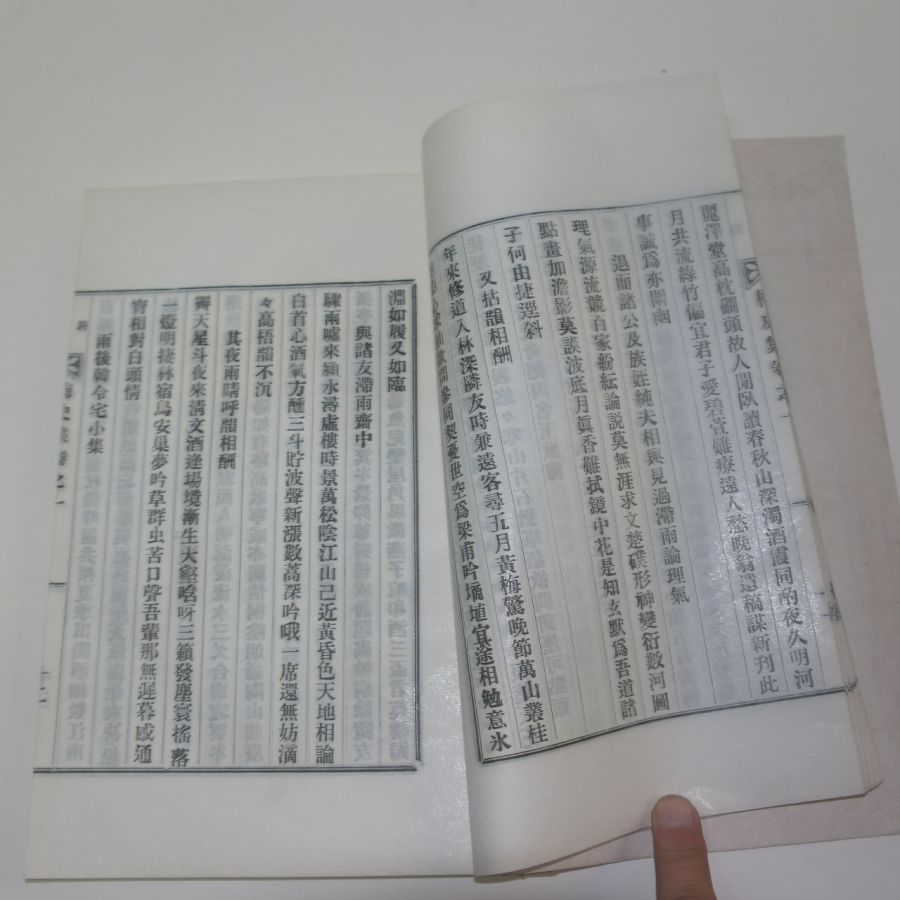 麗澤堂高枕磵頭故人閒臥讀春秋山深濁酒霞同酌夜久明河
月共流綠竹偏宜君子愛碧萱難療遠人愁晚翁遺稿謀新刊此
事誠爲亦闡幽
退而諸公及族姪純夫相與見過滯雨論理氣
理氣源流競百家紛紜論說莫無涯求文楚磺形神變衍數河圖
點畫加澹影莫謨波底月眞香難拭鏡中花是知玄默爲吾道諸
子何由捷逕斜
又拈韻相酬
年來修道入林深隣友時兼遠客尋五月黃梅驚晚節萬山叢桂
參同契憂世空爲梁甫吟擿埴冥途相勉意氷
淵如履又如臨
與諸友滯雨齋中
驟雨噓來潁水潯虛樓時景萬松陰江山已近黃昏色天地相論
白首心酒氣方醺三斗貯波聲新漲數蒿深吟哦一席還無妨滴
々高梧韻不沉
其夜雨晴呼韻相酬
霽天星斗夜來淸文酒逢場境漸生大壑啥呀三籟發塵寰搖落
一燈明捿林宿鳥安巢夢吟草群虫苦口聲吾輩那無遲暮感通
宵相對白頭情
雨後韓令宅小集